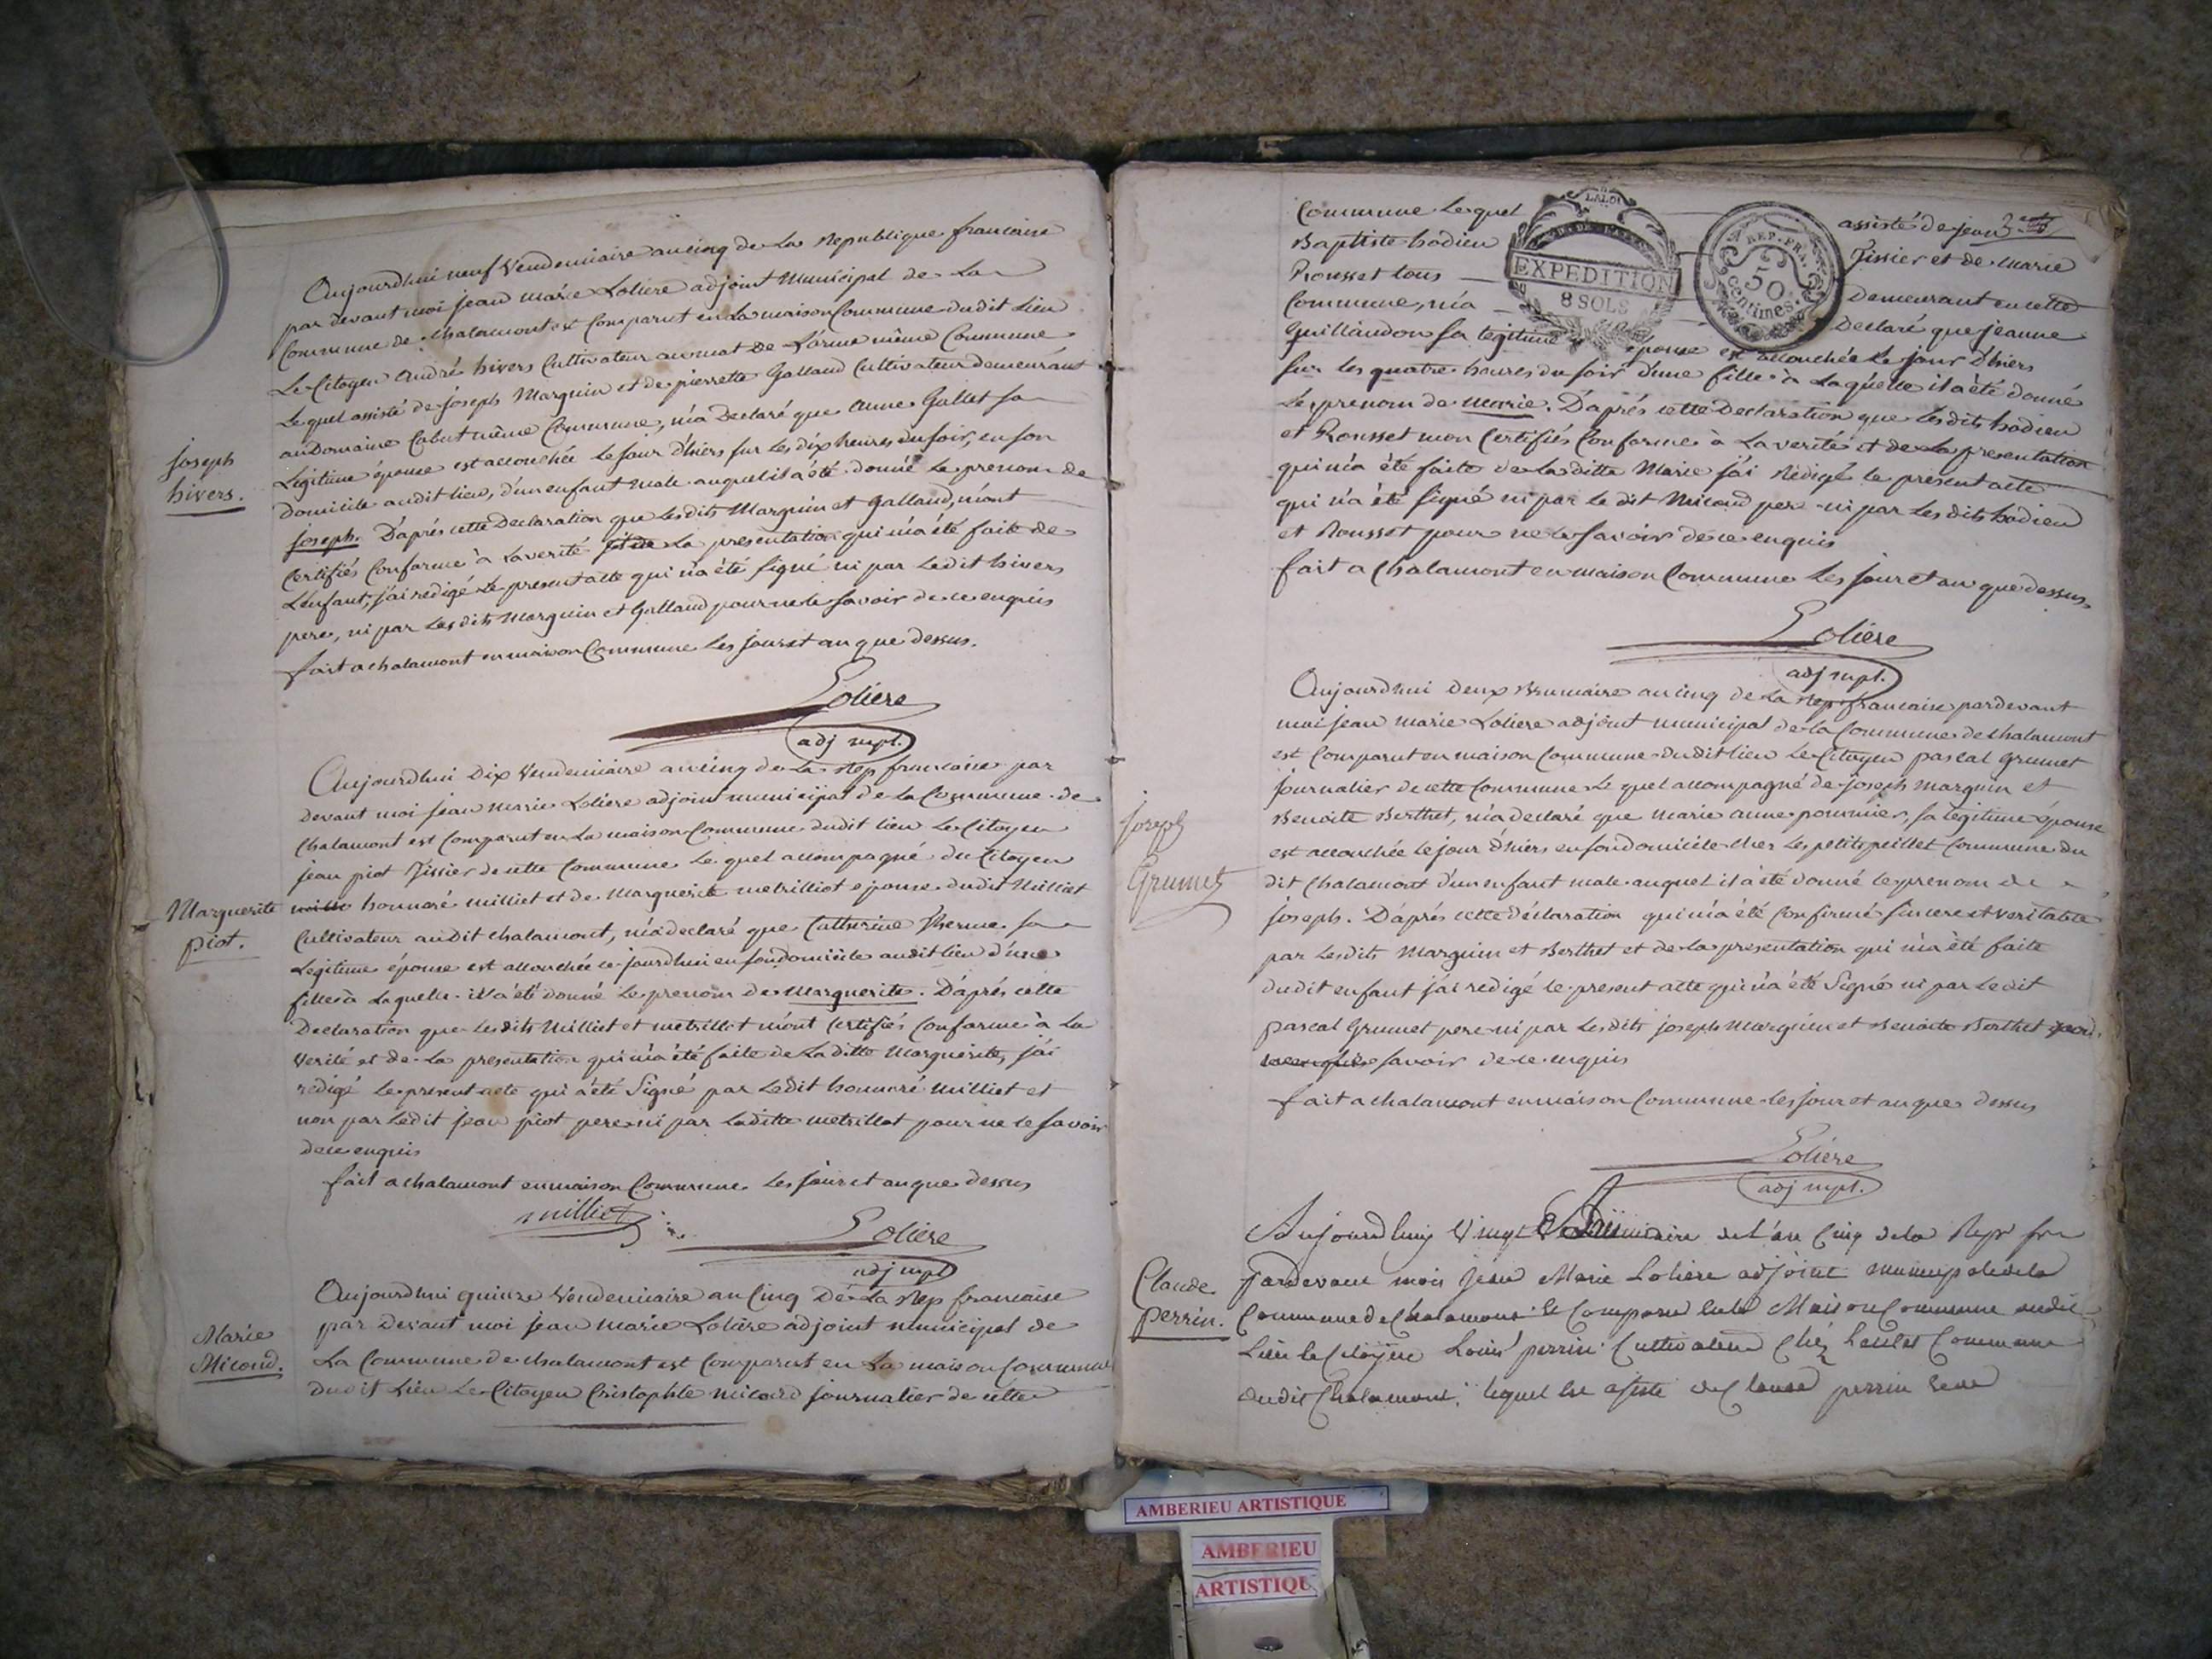 Aujourdhui neuf Vendemiaire an cinq de La Republique francaise
par devant moi jean marie Loliere adjoint Municipal de La
Commune de chalamont est Comparut en La maison Commune dudit Lieu
Le Citoyen André hivers Cultivateur au mat de Lorme même Commune
Lequel assisté de joseph Marguin et de pierrette Galland Cultivateur demeurant
au Domaine Cabut même Commune, m'a Declaré que Anne Gallet sa
Légitime épouse est accouchée le jour d'hiers sur les dix heures du soir, en son
Domicile audit lieu, d'un enfant male auquel il a été donné le prenom de
joseph. D'après cette Declaration que lesdits Marguin et Galland, m'ont
Certifiés Conforme à la verité et de La presentation qui m'a été faite de
L'enfant, j'ai redigé le present acte qui n'a été signé ni par Ledit hivers
pere, ni par Lesdits Marguin et Galland pour ne le savoir de ce enquis
fait a chalamont en maison Commune les jour et an que dessus.
joseph
hivers.
Loliere
adj mpl.
Aujourdhui Dix Vendemiaire an cinq de La Rep francaise par
devant moi jean marie Loliere adjoint municipal de La Commune de
Chalamont est Comparut en La maison Commune dudit lieu Le Citoyen
jean piot Tissier de cette Commune Le quel accompagné du Citoyen
honnoré milliet et de Marguerite metrilliot epouse dudit Milliet
Cultivateur audit chalamont, m'a declaré que Catherine Therme sa
Legitime épouse est accouchée ce jourdhui en son domicile audit lieu d'une
fille à Laquelle il a été donné Le prenom de Marguerite. D'après cette
Declaration que Lesdits Milliet et metrilliot m'ont Certifiés Conforme à La
Verité et de La presentation qui m'a été faite de Laditte Marguerite, j'ai
redigé Le present acte qui a été Signé par Ledit honnoré Milliet et
non par Ledit jean piot pere ni par Laditte metrillot pour ne le savoir
de ce enquis
fait a chalamont en maison Commune les jour et an que dessus
Marguerite
piot.
milliet
Loliere
adj mpl
Aujourdhui quinze Vendemiaire an Cinq De La Rep francaise
par Devant moi jean marie Loliere adjoint municipal de
La Commune de chalamont est Comparut en La maison Commune
dudit Lieu Le Citoyen Cristophle micoud journalier de cette
Marie
Micoud.
Commune Lequel assisté de jean
Baptiste hodieu Tissier et de Marie
Rousset tous Demeurant en cette
Commune, m'a Declaré que jeanne
Guillaudon sa legitime épouse est accouchée Le jour D'hiers
sur les quatre heures du soir d'une fille à Laquelle il a été donné
Le prenom de Marie. D'après cette Declaration que Lesdits hodieu
et Rousset mon Certifiés Conforme à La verité et de La presentation
qui m'a été faite de Laditte Marie j'ai Redigé le present acte
qui n'a été signé ni par le dit Micoud pere ni par Les dits hodieu
et Rousset pour ne le savoir de ce enquis
fait a Chalamont en maison Commune les jour et an que dessus.
LALOI
EXPEDITION
8 SOLS
REP. FRA.
50
centimes.
Loliere
adj mpl.
Aujourdhui Deux Brumaire an cinq de La Rep francaise pardevant
moi jean marie Loliere adjoint municipal de la Commune de chalamont
est Comparut en maison Commune dudit lieu Le Citoyen pascal Grumet
journalier de cette Commune Le quel accompagné de joseph Marguin et
Benoite Berthet, m'a declaré que Marie Anne pournier, sa legitime épouse
est accouchée le jour d'hiers en son domicile cher Les petits peillet Commune du
dit Chalamont d'un enfant male auquel il a été donné le prenom de
joseph. D'après cette déclaration qui m'a été Confirmé sincere et veritable
par Lesdits Marguin et Berthet et de La presentation qui m'a été faite
dudit enfant j'ai redigé le present acte qui n'a été Signé ni par Ledit
pascal Grumet pere ni par Lesdits joseph Marguin et Benoite Berthet
savoir de ce enquis
fait a chalamont en maison Commune les jour et an que dessus
joseph
Grumet
Loliere
adj mpl.
Aujourdhuy Vingt de l'an Cinq de la Repr fra
Pardevant mois Jean Marie Loliere adjoint municipale de la
Commune de Chalamont Maison Commune dudit
Lieu le Citoyen Louis perrin Cultivateur Chéz Commune
dudit Chalamont, lequel perrin
Claude
perrin.
AMBERIEU ARTISTIQUE
AMBERIEU
ARTISTIQU